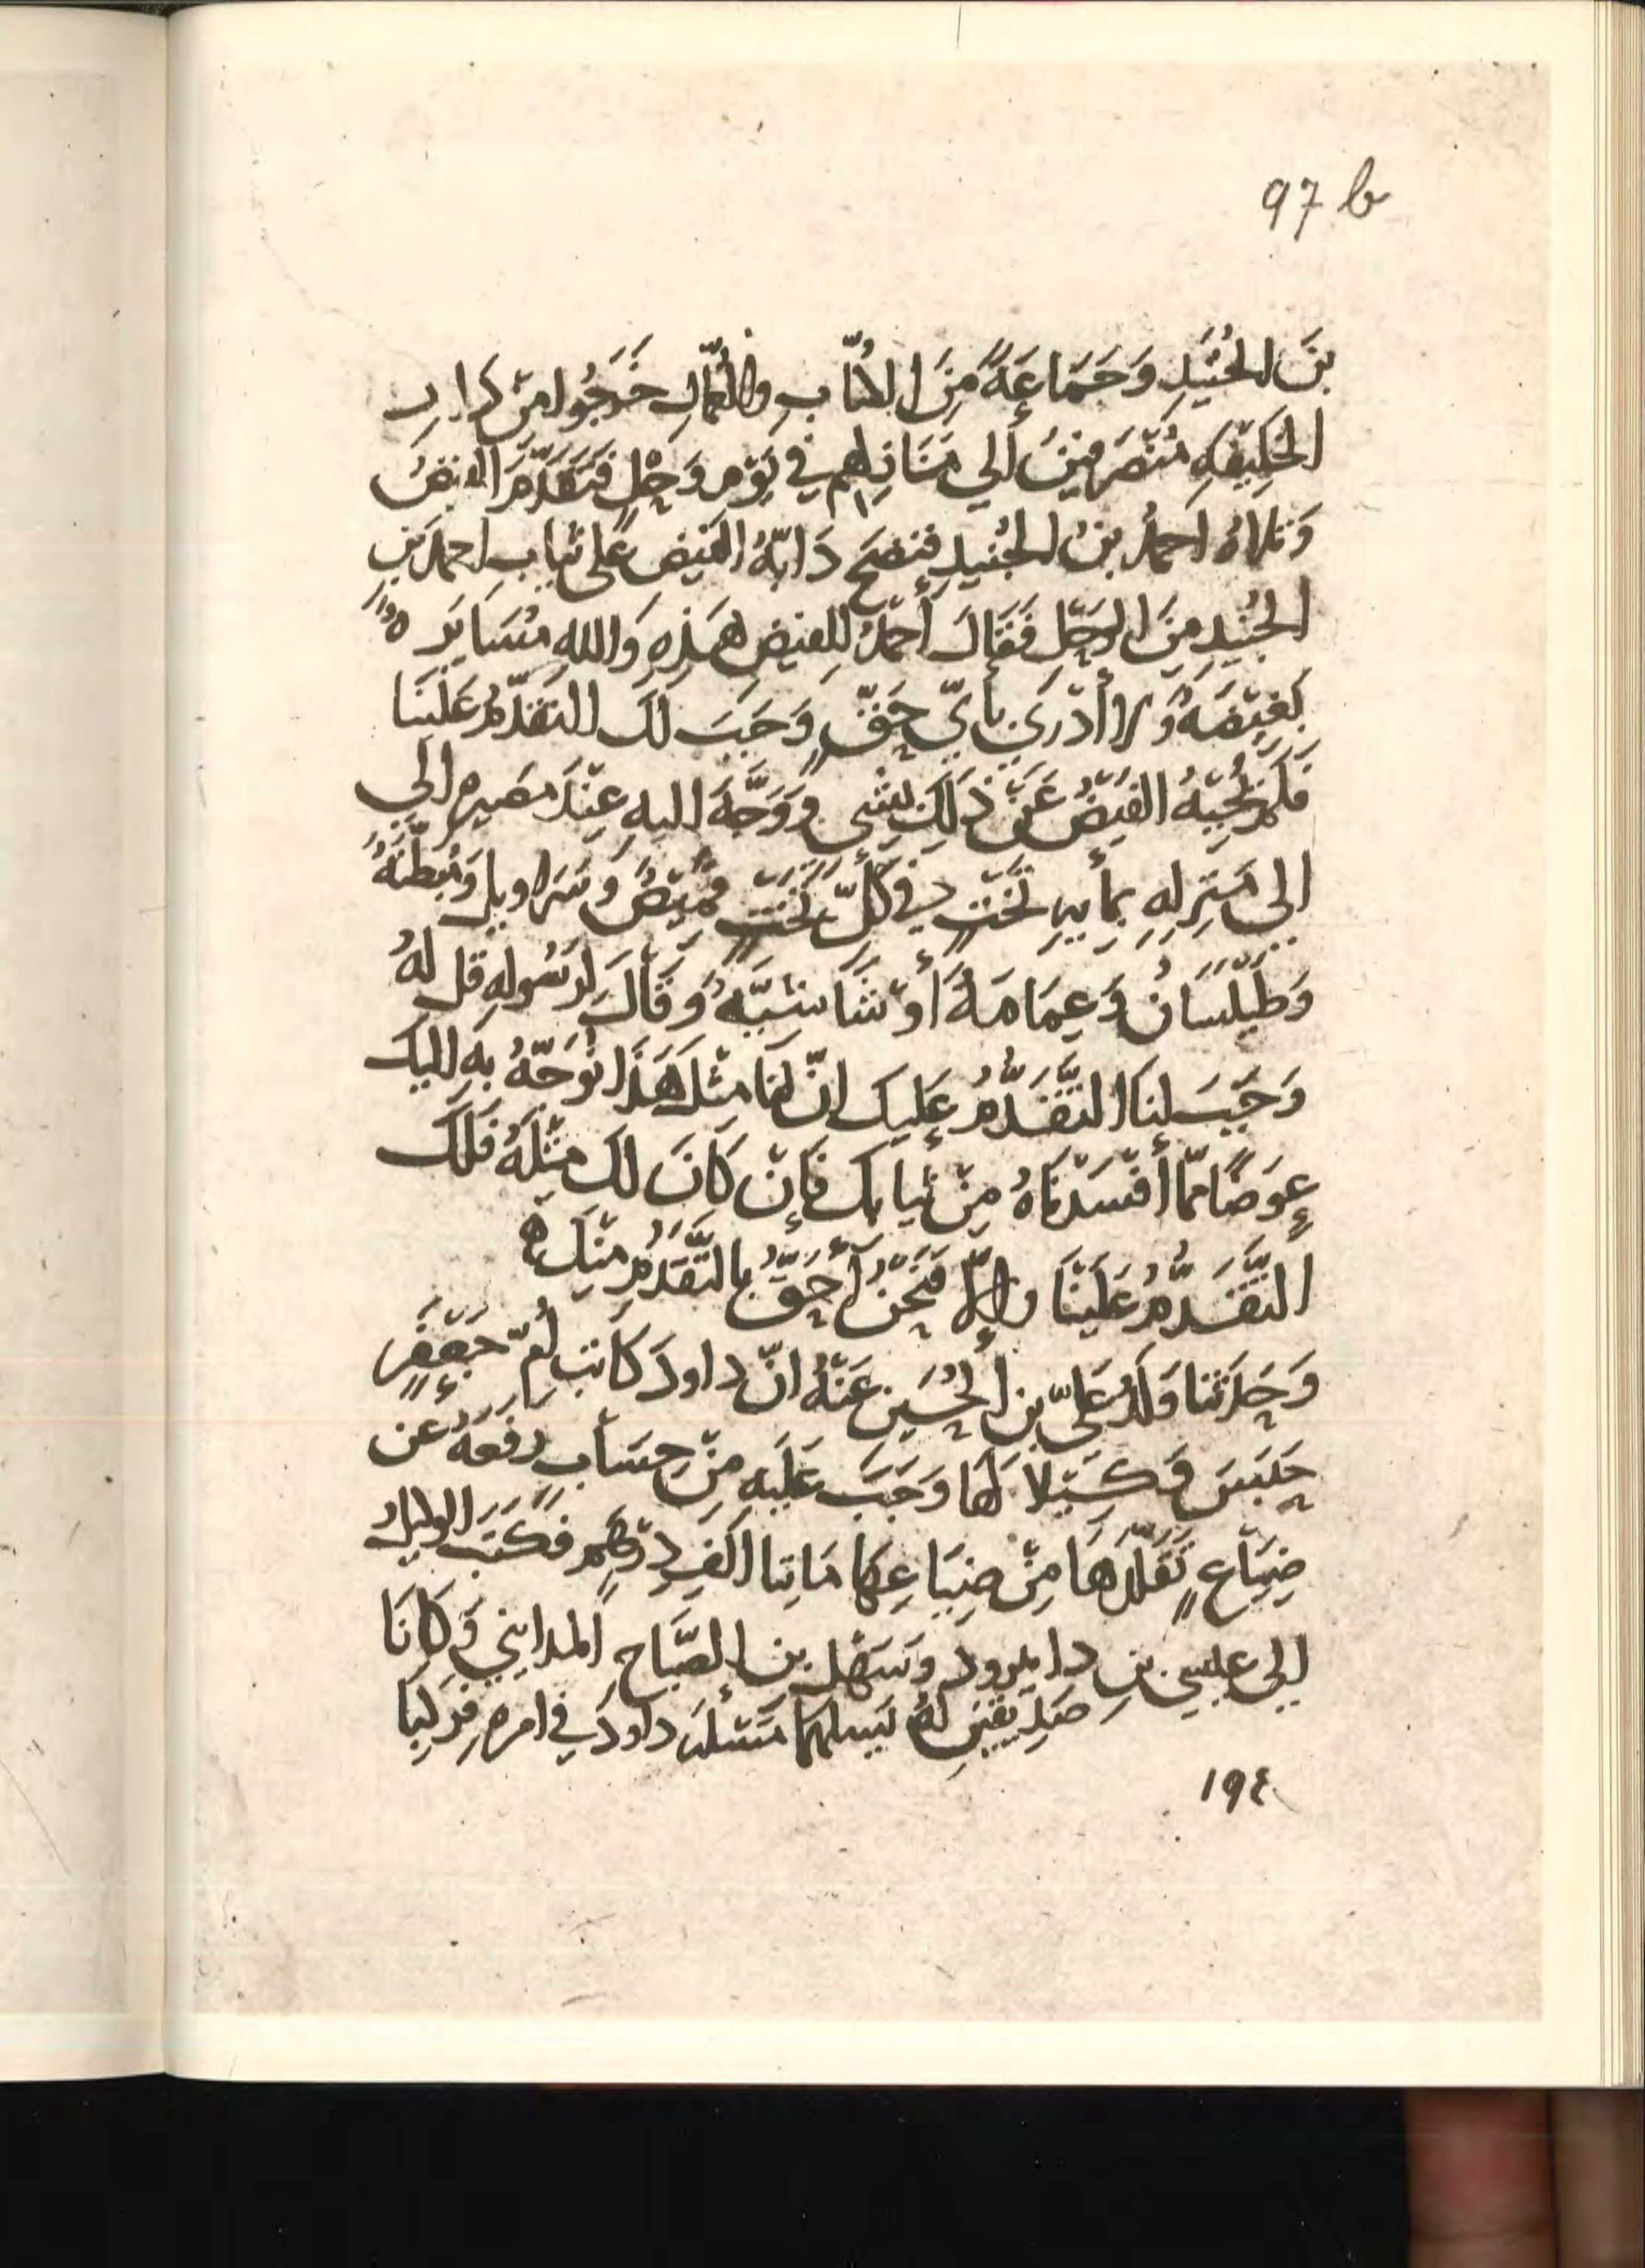 97 b
بنَ الجُنَيدِ وَجَمَاعَةً مِنَ الكُتَّابِ وَالعُمَّالِ خَرَجُوا مِنْ دَارِ
الخَلِيفَةِ مُنْصَرِفِينَ الى مَنَازِلِهِم في يَوْمِ وَحْلٍ فَتَقَدَّمَ الفَيْضُ
وَتلاهُ احمدُ بنُ الجُنَيدِ فنضحَ دَابَّةُ الفَيْضِ عَلى ثيابِ احمدَ بنِ
الجُنَيدِ مِنَ الوَحْلِ فَقَالَ أَحمدُ لِلفيضِ هَذِهِ وَالله مُسَايَرَةٌ
بَغِيضَةٌ وَلا أَدْرِي بأيِّ حَقٍّ وَجَبَ لَكَ التَّقَدُّمُ عَلَيْنَا
فَلَمْ يُجِبْهُ الفَيْضُ عَنْ ذَلِكَ بِشَيءٍ وَوَجَّهَ اليهِ عِنْدَ مَصيرِهِ الي
الى مَنزِلِهِ بمأيةِ تَخْتٍ في كُلِّ تَخْتٍ قميصٌ وسَرَاويلُ وَمُبَطَّنَةٌ
وَطَيْلَسَانٌ وَعِمَامَةٌ أَوْ شَاشِيَّةٌ وَقَالَ لِرَسُولِهِ قل لَهُ
وَجَبَ لنَا التَّقَدُّمُ عَلَيكَ انّ لنا مثلَ هَذَا نُوَجِّهُ بهِ اليكَ
عِوَضًا مِمَّا أَفْسَدْنَاهُ مِنْ ثيابكَ فَإِنْ كَانَ لَكَ مِثْلَهُ فَلَكَ
التَّقَدُّمُ عَلَيْنَا وإلّا فَنَحْنُ أَحَقُّ بالتَّقَدُّمِ مِنْكَ ه
وَحَدَّثَنَا وَلَدُ عَلِيِّ بنِ الحُسَينِ عَنْهُ انّ داودَ كاتبَ أُمِّ جَعْفَرٍ
حَبَسَ وَكِيلًا لَهَا وَجَبَ عَلَيهِ مِنْ حِسَابٍ رفعَهُ عن
ضِيَاعٍ تَقَلَّدَهَا مِنْ ضِيَاعِهَا مَايتا الفِ دِرْهَمٍ فَكَتَبَ الوكيلُ
الى عيسى بنِ دايرود وسَهْلِ بنِ الصَّبَّاحِ المدايني وَكَانَا
صَدِيقَينِ لَهُ يَسلهما مَسْئلَةَ داودَ في امرهِ فَرَكِبَا
١٩٤